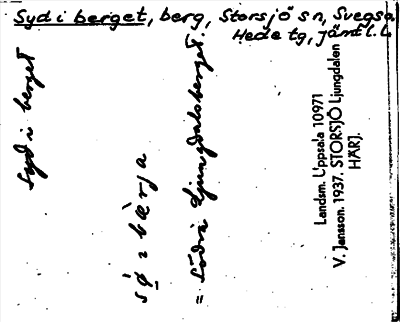 Syd i berget, berg, Storsjö sn, Svegsa
Hede tg, jämtl. l.
Syd i berget
= Södra Ljungdalsberget.
Landsm. Uppsala 10971
V. Jansson. 1937. STORSJÖ Ljungdalen
HÄRJ.